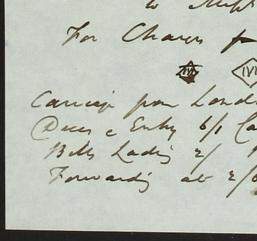 to
For Charges
Carriage from Lond
Dues & Entry 6/1 Ca
Bills Lading 2/
Forwarding at 2/6